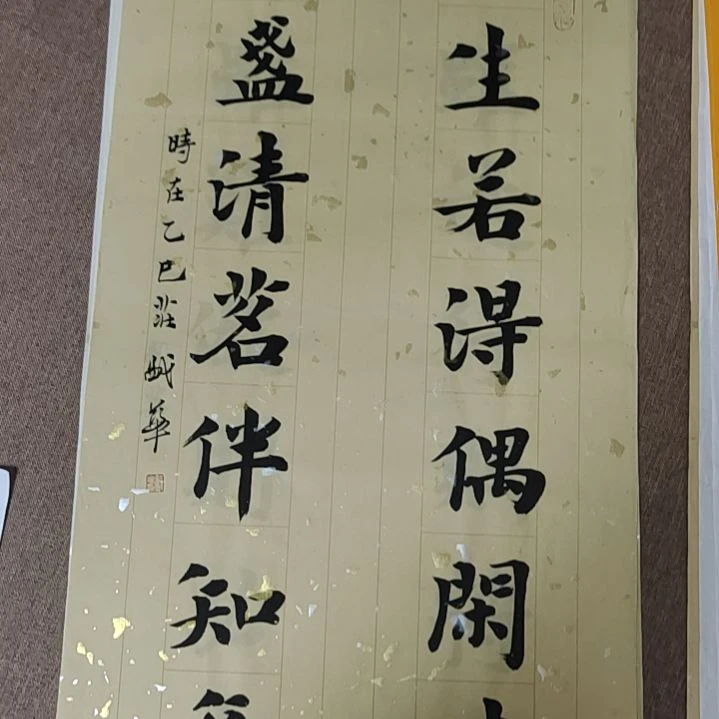 生若得偶閑
盞清茗伴知
時在乙巳莊 華